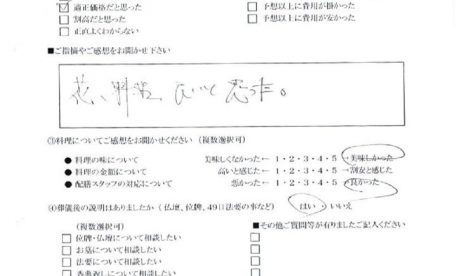 ☑ 適正価格だと思った
□ 割高だと思った
□ 正直よくわからない
□ 予想以上に費用が掛かった
□ 予想以上に費用が安かった
■ご指摘やご感想をお聞かせ下さい
花、料理、良いと思った。
③料理についてご感想をお聞かせください(複数選択可)
● 料理の味について 美味しくなかった← 1・2・3・4・5 →美味しかった
● 料理の金額について 高いと感じた← 1・2・3・4・5 →割安と感じた
● 配膳スタッフの対応について 悪かった← 1・2・3・4・5 →良かった
④葬儀後の説明はありましたか(仏壇、位牌、49日法要の事など) はい ・ いいえ
(複数選択可)
□ 位牌・仏壇について相談したい
□ お墓について相談したい
□ 法要について相談したい
□ 香典返しについて相談したい
■その他ご質問等が有りましたご記入ください